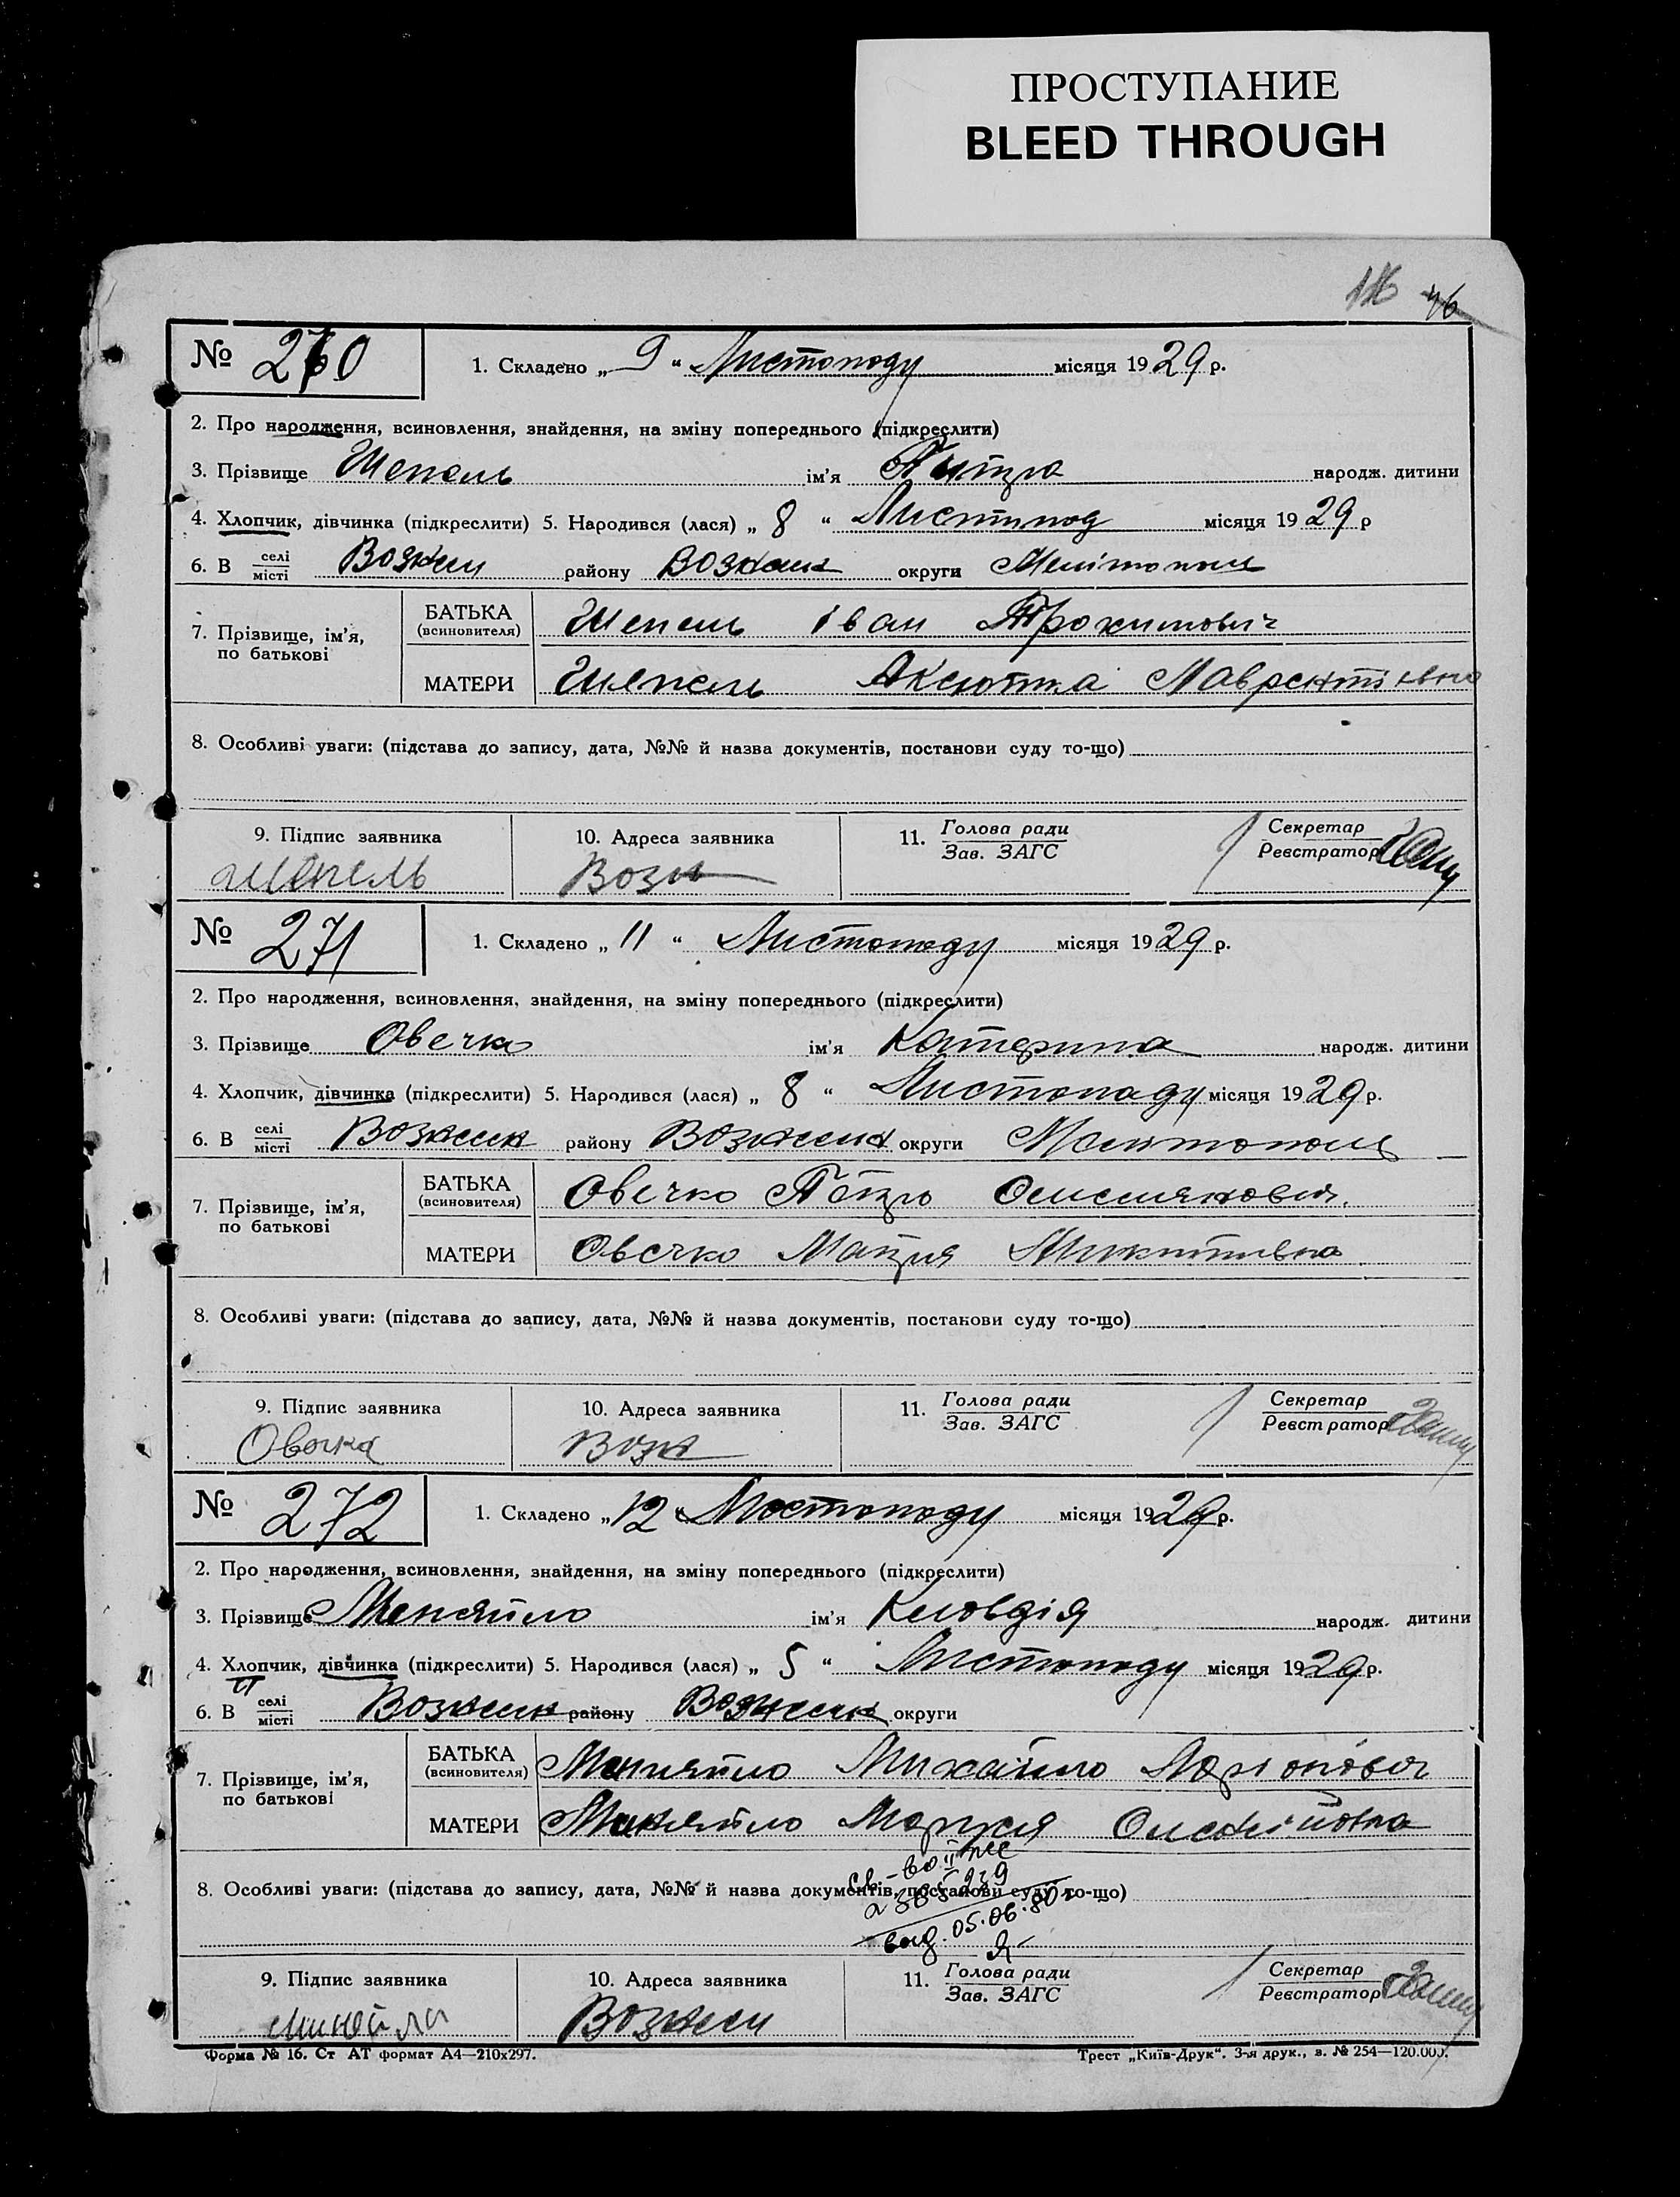 ПРОСТУПАНИЕ
BLEED THROUGH
46
№ 270 1. Складено „ 9 “ Листопаду місяця 1929 р.
2. Про народження, всиновлення, знайдення, на зміну попереднього (підкреслити)
3. Прізвище Шепель ім'я Питро народж. дитини
4. Хлопчик, дівчинка (підкреслити) 5. Народився (лася) „ 8 “ Листопад місяця 1929 р
6. В селі/місті Вознесн району округи
7. Прізвище, ім'я, по батькові
БАТЬКА (всиновителя) Шепель Іван Трохимович
МАТЕРИ Шепель Лаврентіевна
8. Особливі уваги: (підстава до запису, дата, №№ й назва документів, постанови суду то-що)
9. Підпис заявника 10. Адреса заявника 11. Голова ради/Зав. ЗАГС Секретар/Реєстратор
Шепель Возн
№ 271 1. Складено „ 11 “ Листопаду місяця 1929 р.
2. Про народження, всиновлення, знайдення, на зміну попереднього (підкреслити)
3. Прізвище Овечко ім'я Катерина народж. дитини
4. Хлопчик, дівчинка (підкреслити) 5. Народився (лася) „ 8 “ Листопаду місяця 1929 р.
6. В селі/місті Вознесен району Вознесен округи
7. Прізвище, ім'я, по батькові
БАТЬКА (всиновителя) Овечко Пётро
МАТЕРИ Овечко Марія Микитивна
8. Особливі уваги: (підстава до запису, дата, №№ й назва документів, постанови суду то-що)
9. Підпис заявника 10. Адреса заявника 11. Голова ради/Зав. ЗАГС Секретар/Реєстратор
Овечка Возн
№ 272 1. Складено „ 12 “ Листопаду місяця 1929 р.
2. Про народження, всиновлення, знайдення, на зміну попереднього (підкреслити)
3. Прізвище Меняйло ім'я Кловдія народж. дитини
4. Хлопчик, дівчинка (підкреслити) 5. Народився (лася) „ 5 “ Листопаду місяця 1929 р.
6. В селі/місті Вознесен району Вознесен округи
7. Прізвище, ім'я, по батькові
БАТЬКА (всиновителя) Миняйло Михайло
МАТЕРИ Миняйло Маруся
св-во II
8. Особливі уваги: (підстава до запису, дата, №№ й назва документів, постанови суду то-що)
выд. 05.06.80
9. Підпис заявника 10. Адреса заявника 11. Голова ради/Зав. ЗАГС Секретар/Реєстратор
Вознесен
Форма № 16. Ст АТ формат А4—210х297. Трест „Київ-Друк“. 3-я друк., в. № 254—120.000.